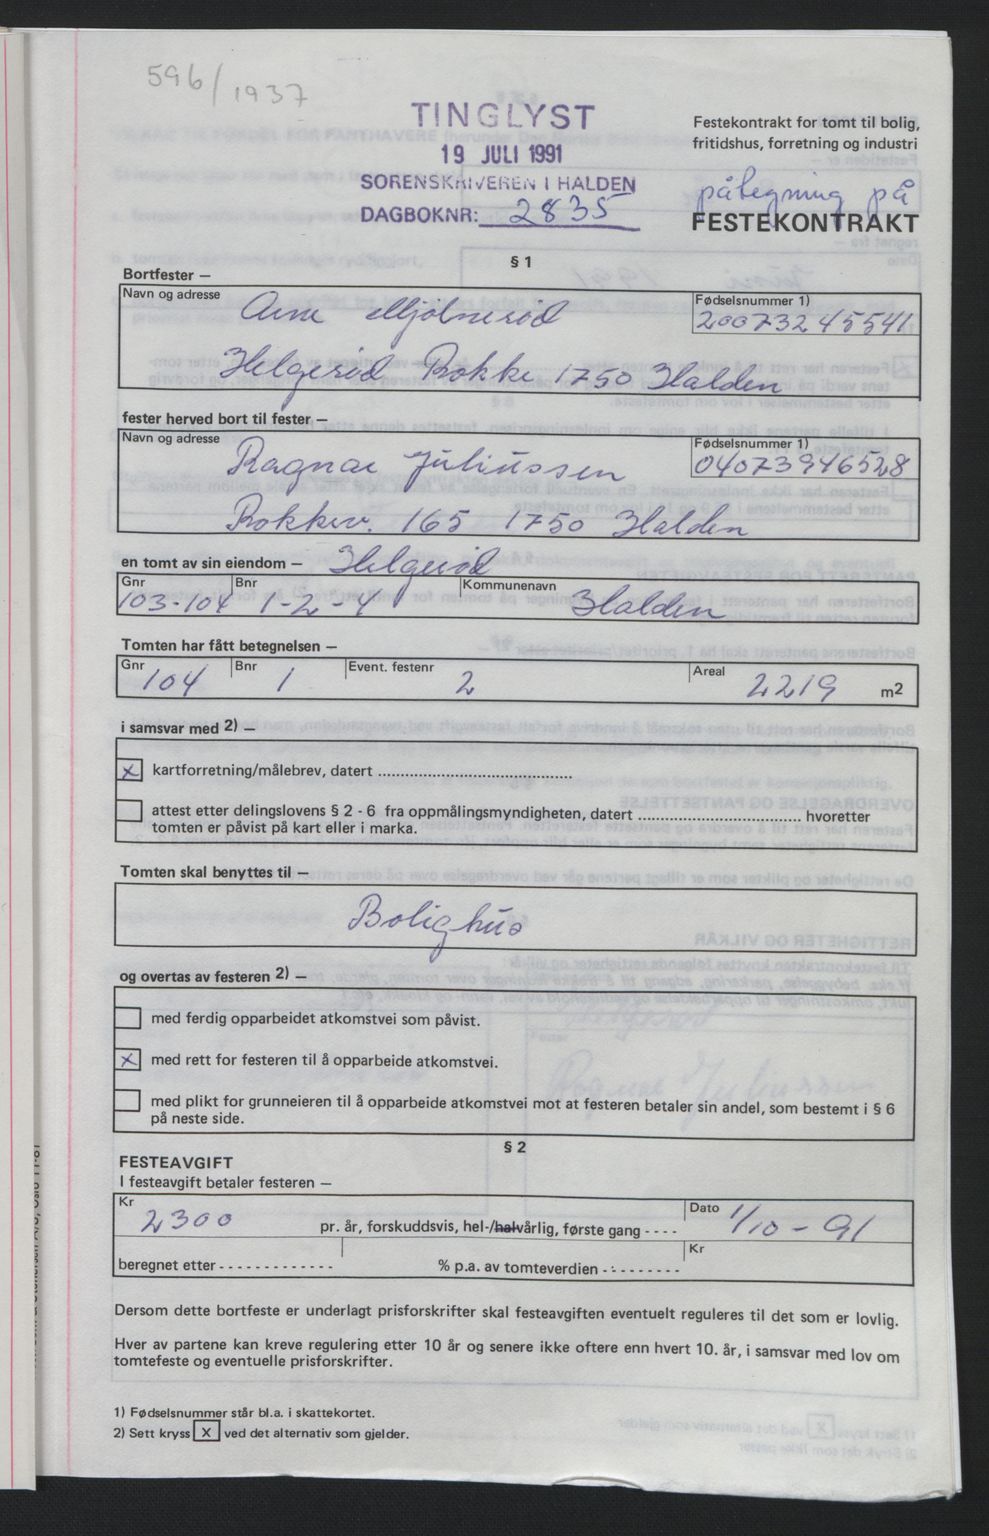 596/1937
TINGLYST
19 JULI 1991
SORENSKRIVEREN I HALDEN
DAGBOKNR: 2835
Festekontrakt for tomt til bolig,
fritidshus, forretning og industri
påtegning på
FESTEKONTRAKT
§ 1
Bortfester —
Navn og adresse
Fødselsnummer 1)
Arne Mjølnerød
20073245541
Helgerød Rokke 1750 Halden
fester herved bort til fester —
Navn og adresse
Fødselsnummer 1)
Ragnar Juliussen
04073946528
Rokkev. 165 1750 Halden
en tomt av sin eiendom — Helgerød
Gnr Bnr Kommunenavn
103-104 1-2-4 Halden
Tomten har fått betegnelsen —
Gnr Bnr Event. festenr Areal
104 1 2 2219 m2
i samsvar med 2) —
x kartforretning/målebrev, datert ......................................
attest etter delingslovens § 2 - 6 fra oppmålingsmyndigheten, datert ................................ hvoretter
tomten er påvist på kart eller i marka.
Tomten skal benyttes til —
Bolighus
og overtas av festeren 2) —
med ferdig opparbeidet atkomstvei som påvist.
x med rett for festeren til å opparbeide atkomstvei.
med plikt for grunneieren til å opparbeide atkomstvei mot at festeren betaler sin andel, som bestemt i § 6
på neste side.
§ 2
FESTEAVGIFT
I festeavgift betaler festeren —
Kr 2300 pr. år, forskuddsvis, hel-/halvårlig, første gang - - - - Dato 1/10 - 91
beregnet etter - - - - - - - - - - - - - % p.a. av tomteverdien - - - - - - - - - Kr
Dersom dette bortfeste er underlagt prisforskrifter skal festeavgiften eventuelt reguleres til det som er lovlig.
Hver av partene kan kreve regulering etter 10 år og senere ikke oftere enn hvert 10. år, i samsvar med lov om
tomtefeste og eventuelle prisforskrifter.
1) Fødselsnummer står bl.a. i skattekortet.
2) Sett kryss X ved det alternativ som gjelder.